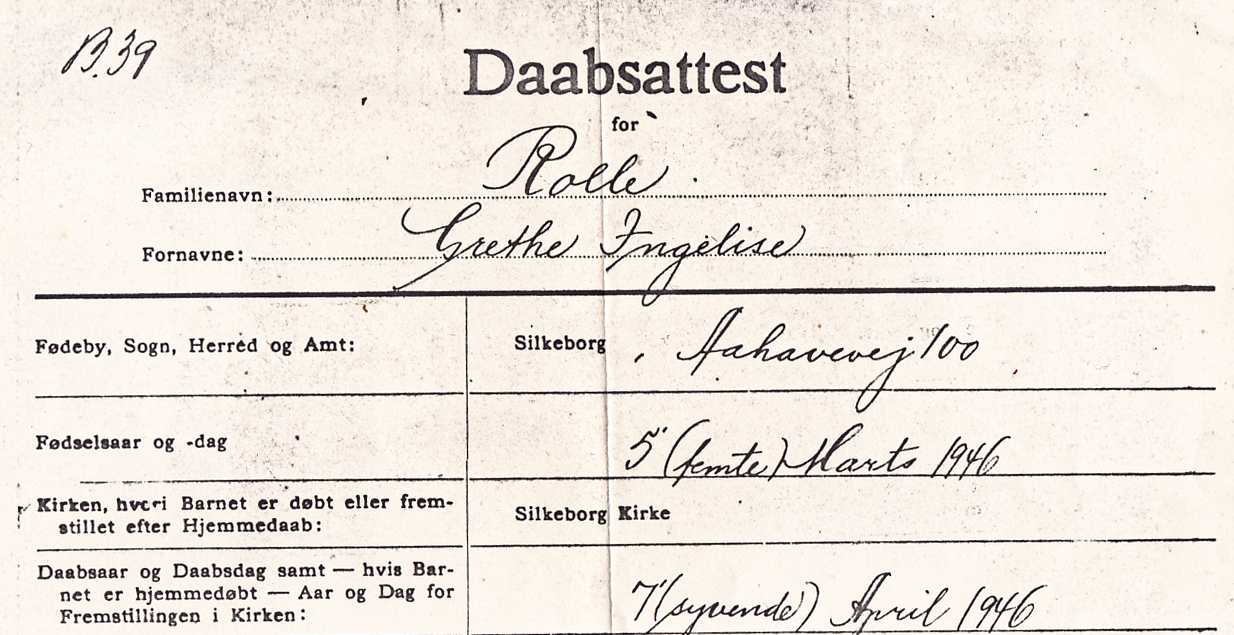 B.39
Daabsattest
for
Familienavn: Rolle
Fornavne: Grethe Ingelise
Fødeby, Sogn, Herred og Amt: Silkeborg, Aahavevej 100
Fødselsaar og -dag 5' (femte) Marts 1946
Kirken, hvori Barnet er døbt eller frem-
stillet efter Hjemmedaab: Silkeborg Kirke
Daabsaar og Daabsdag samt — hvis Bar-
net er hjemmedøbt — Aar og Dag for
Fremstillingen i Kirken: 7' (syvende) April 1946